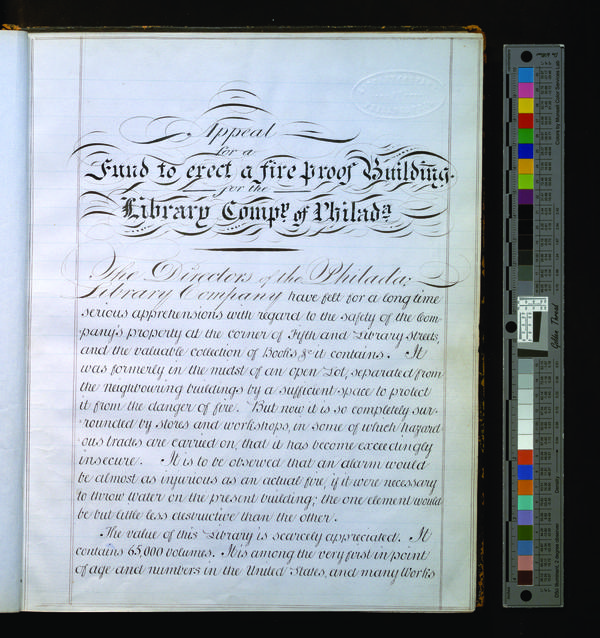 Appeal
for a
Fund to erect a fire proof Building.
for the
Library Compy. of Philada.
The Directors of the Philada:
Library Company have felt for a long time
serious apprehensions with regard to the safety of the Com-
pany's property at the corner of Fifth and Library Streets,
and the valuable collection of Books &c it contains. It
was formerly in the midst of an open Lot, separated from
the neighbouring buildings by a sufficient space to protect
it from the danger of fire. But now it is so completely sur-
rounded by stores and workshops, in some of which hazard
ous trades are carried on, that it has become exceedingly
insecure. It is to be observed that an alarm would
be almost as injurious as an actual fire, if it were necessary
to throw water on the present building; the one element would
be but little less destructive than the other.
The value of this Library is scarcely appreciated. It
contains 65,000 volumes. It is among the very first in point
of age and numbers in the United States, and many Works